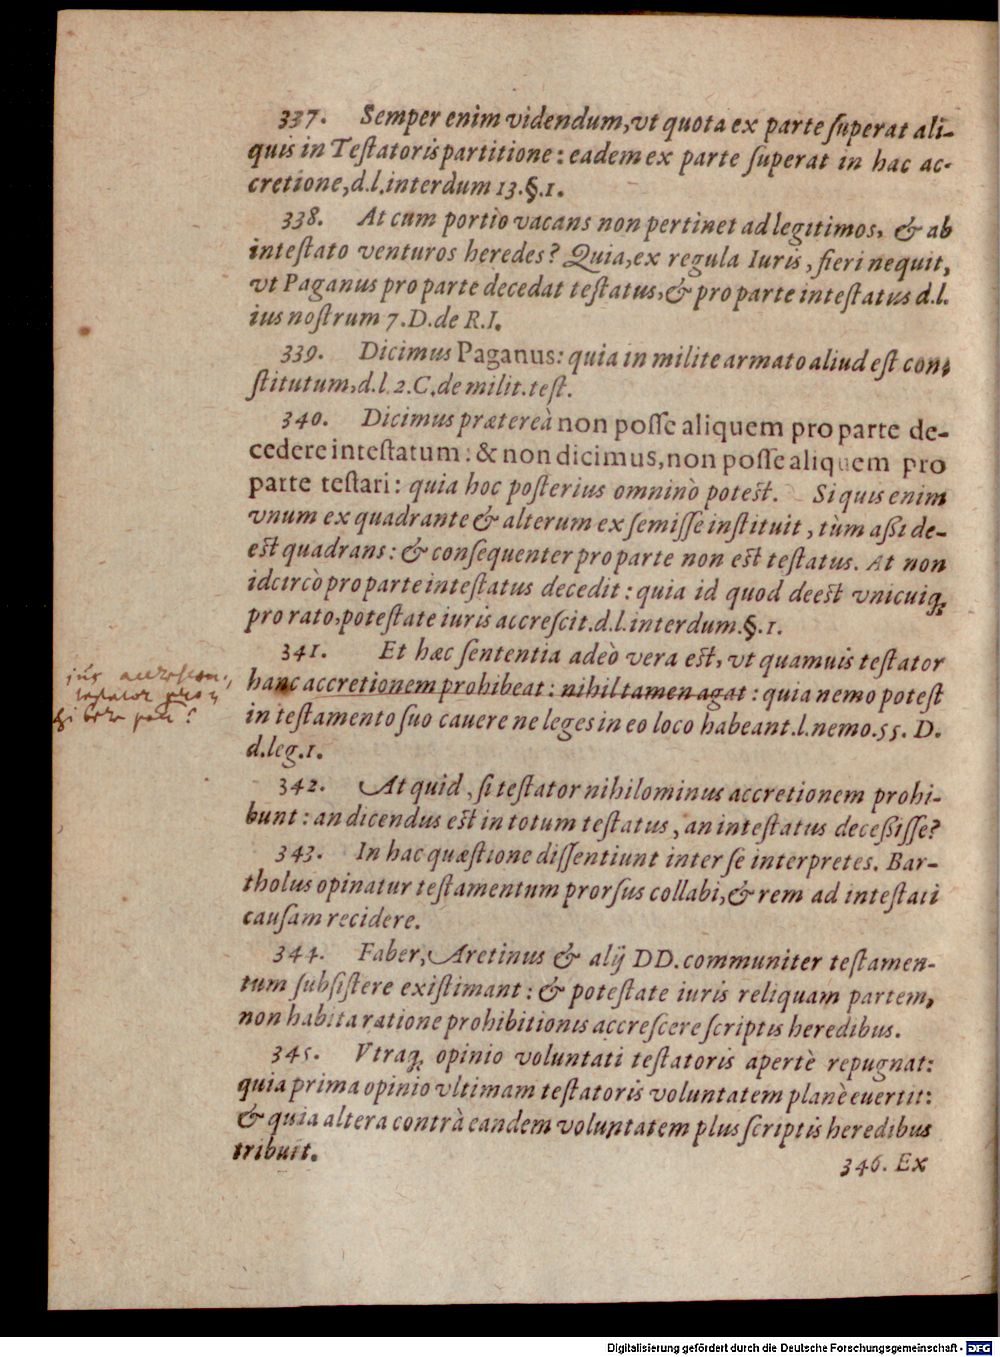 337. Semper enim videndum,vt quota ex parte ſuperat ali-
quis in Teſtatoris partitione: eadem ex parte ſuperat in hac ac-
cretione,d.l.interdum 13.§.1.
338. At cum portio vacans non pertinet ad legitimos, & ab
inteſtato venturos heredes? Quia,ex regula Iuris, fieri nequit,
vt Paganus pro parte decedat teſtatus,& pro parte inteſtatus d.l.
ius noſtrum 7.D.de R.I.
339. Dicimus Paganus: quia in milite armato aliud eſt con-
ſtitutum,d.l.2.C.de milit.teſt.
340. Dicimus prætereà non poſſe aliquem pro parte de-
cedere inteſtatum: & non dicimus,non poſſe aliquem pro
parte teſtari: quia hoc poſterius omninò poteſt. Si quis enim
vnum ex quadrante & alterum ex ſemiſſe inſtituit, tùm aßi de-
eſt quadrans: & conſequenter pro parte non eſt teſtatus. At non
idcircò pro parte inteſtatus decedit: quia id quod deeſt vnicuiq;
pro rato,poteſtate iuris accreſcit.d.l.interdum.§.1.
341. Et hæc ſententia adeò vera eſt, vt quamuis teſtator
hanc accretionem prohibeat: nihil tamen agat: quia nemo poteſt
in teſtamento ſuo cauere ne leges in eo loco habeant.l.nemo.55. D.
d.leg.1.
ius
342. At quid, ſi teſtator nihilominus accretionem prohi-
bunt: an dicendus eſt in totum teſtatus, an inteſtatus deceßiſſe?
343. In hac quæſtione diſſentiunt inter ſe interpretes. Bar-
tholus opinatur teſtamentum prorſus collabi,& rem ad inteſtati
cauſam recidere.
344. Faber, Aretinus & alij DD. communiter teſtamen-
tum ſubſiſtere exiſtimant: & poteſtate iuris reliquam partem,
non habita ratione prohibitionis accreſcere ſcriptis heredibus.
345. Vtraq; opinio voluntati teſtatoris apertè repugnat:
quia prima opinio vltimam teſtatoris voluntatem planè euertit:
& quia altera contrà eandem voluntatem plus ſcriptis heredibus
tribuit.
346. Ex
Digitalisierung gefördert durch die Deutsche Forschungsgemeinschaft - DFG